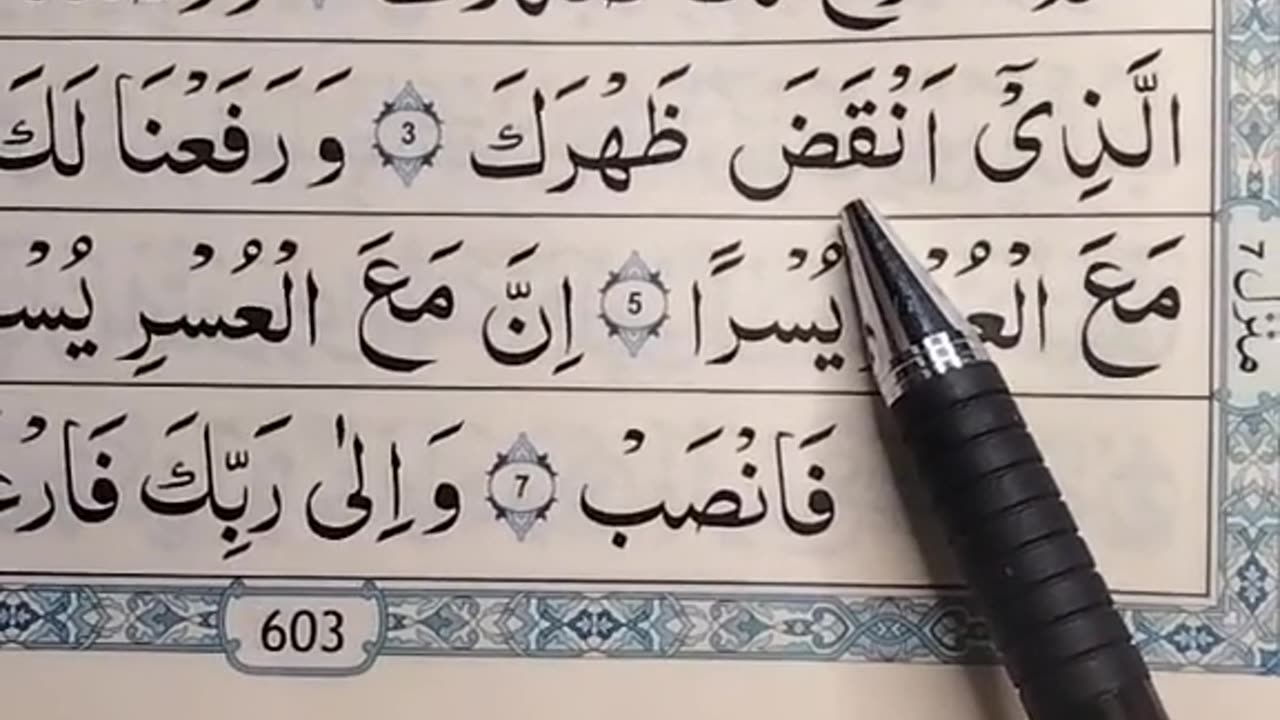 الَّذِیْۤ اَنْقَضَ ظَهْرَكَ 3 وَ رَفَعْنَا لَكَ
مَعَ الْعُسْرِ یُسْرًا 5 اِنَّ مَعَ الْعُسْرِ یُسْ
فَانْصَبْ 7 وَ اِلٰی رَبِّكَ فَارْغَ
603
منزل ٧